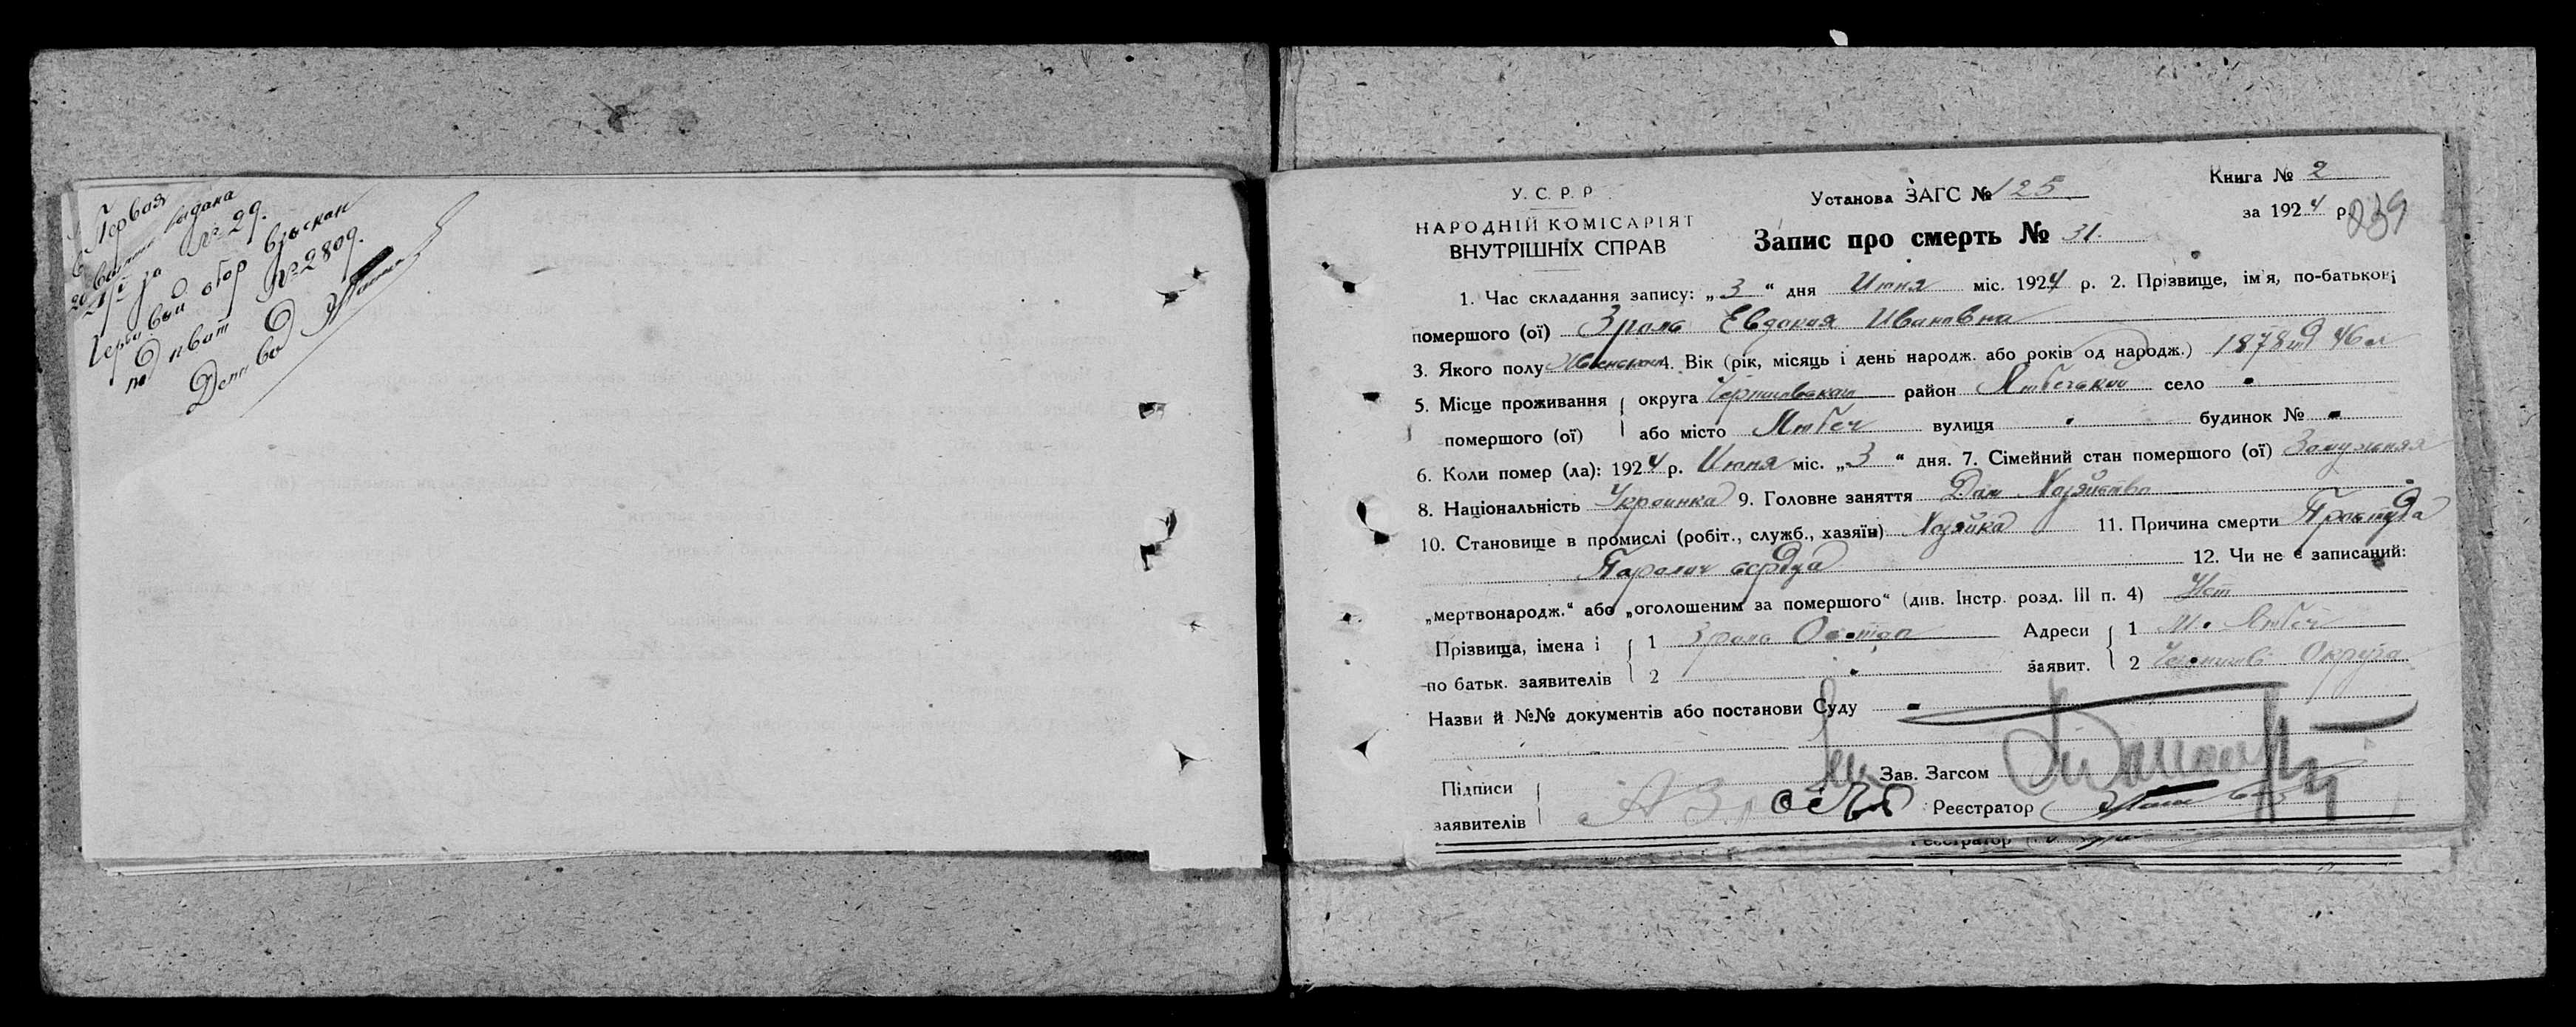 Первая
выдана
за № 29.
Гербовый сбор взыскан
по квит № 2809.
У. С. Р. Р.
НАРОДНІЙ КОМІСАРІЯТ
ВНУТРІШНІХ СПРАВ
Установа ЗАГС № 125
Книга № 2
за 1924 р.
239
Запис про смерть № 31.
1. Час складання запису: „3“ дня Июня міс. 1924 р. 2. Прізвище, ім'я, по-батькові
помершого (ої) Зроль Евдокия Ивановна
3. Якого полу Женского 4. Вік (рік, місяць і день народж. або років од народж.) 1878 46 л
5. Місце проживання помершого (ої) округа Черниговская район Любечский село
або місто Любеч вулиця будинок №
6. Коли помер (ла): 1924 р. Июня міс. „3“ дня. 7. Сімейний стан помершого (ої) Замужняя
8. Національність Украинка 9. Головне заняття Дом Хозяйство
10. Становище в промислі (робіт., служб., хазяїн) Хозяйка 11. Причина смерти Простуда
Паралич сердца 12. Чи не є записаний:
„мертвонародж.“ або „оголошеним за померщого“ (див. Інстр. розд. III п. 4) Нет
Прізвища, імена і по батьк. заявителів 1 Зроль Остап Адреси заявит. 1 М. Любеч
2 2 Округа
Назви й №№ документів або постанови Суду
Підписи заявителів
Зав. Загсом
Реєстратор
Реєстратор